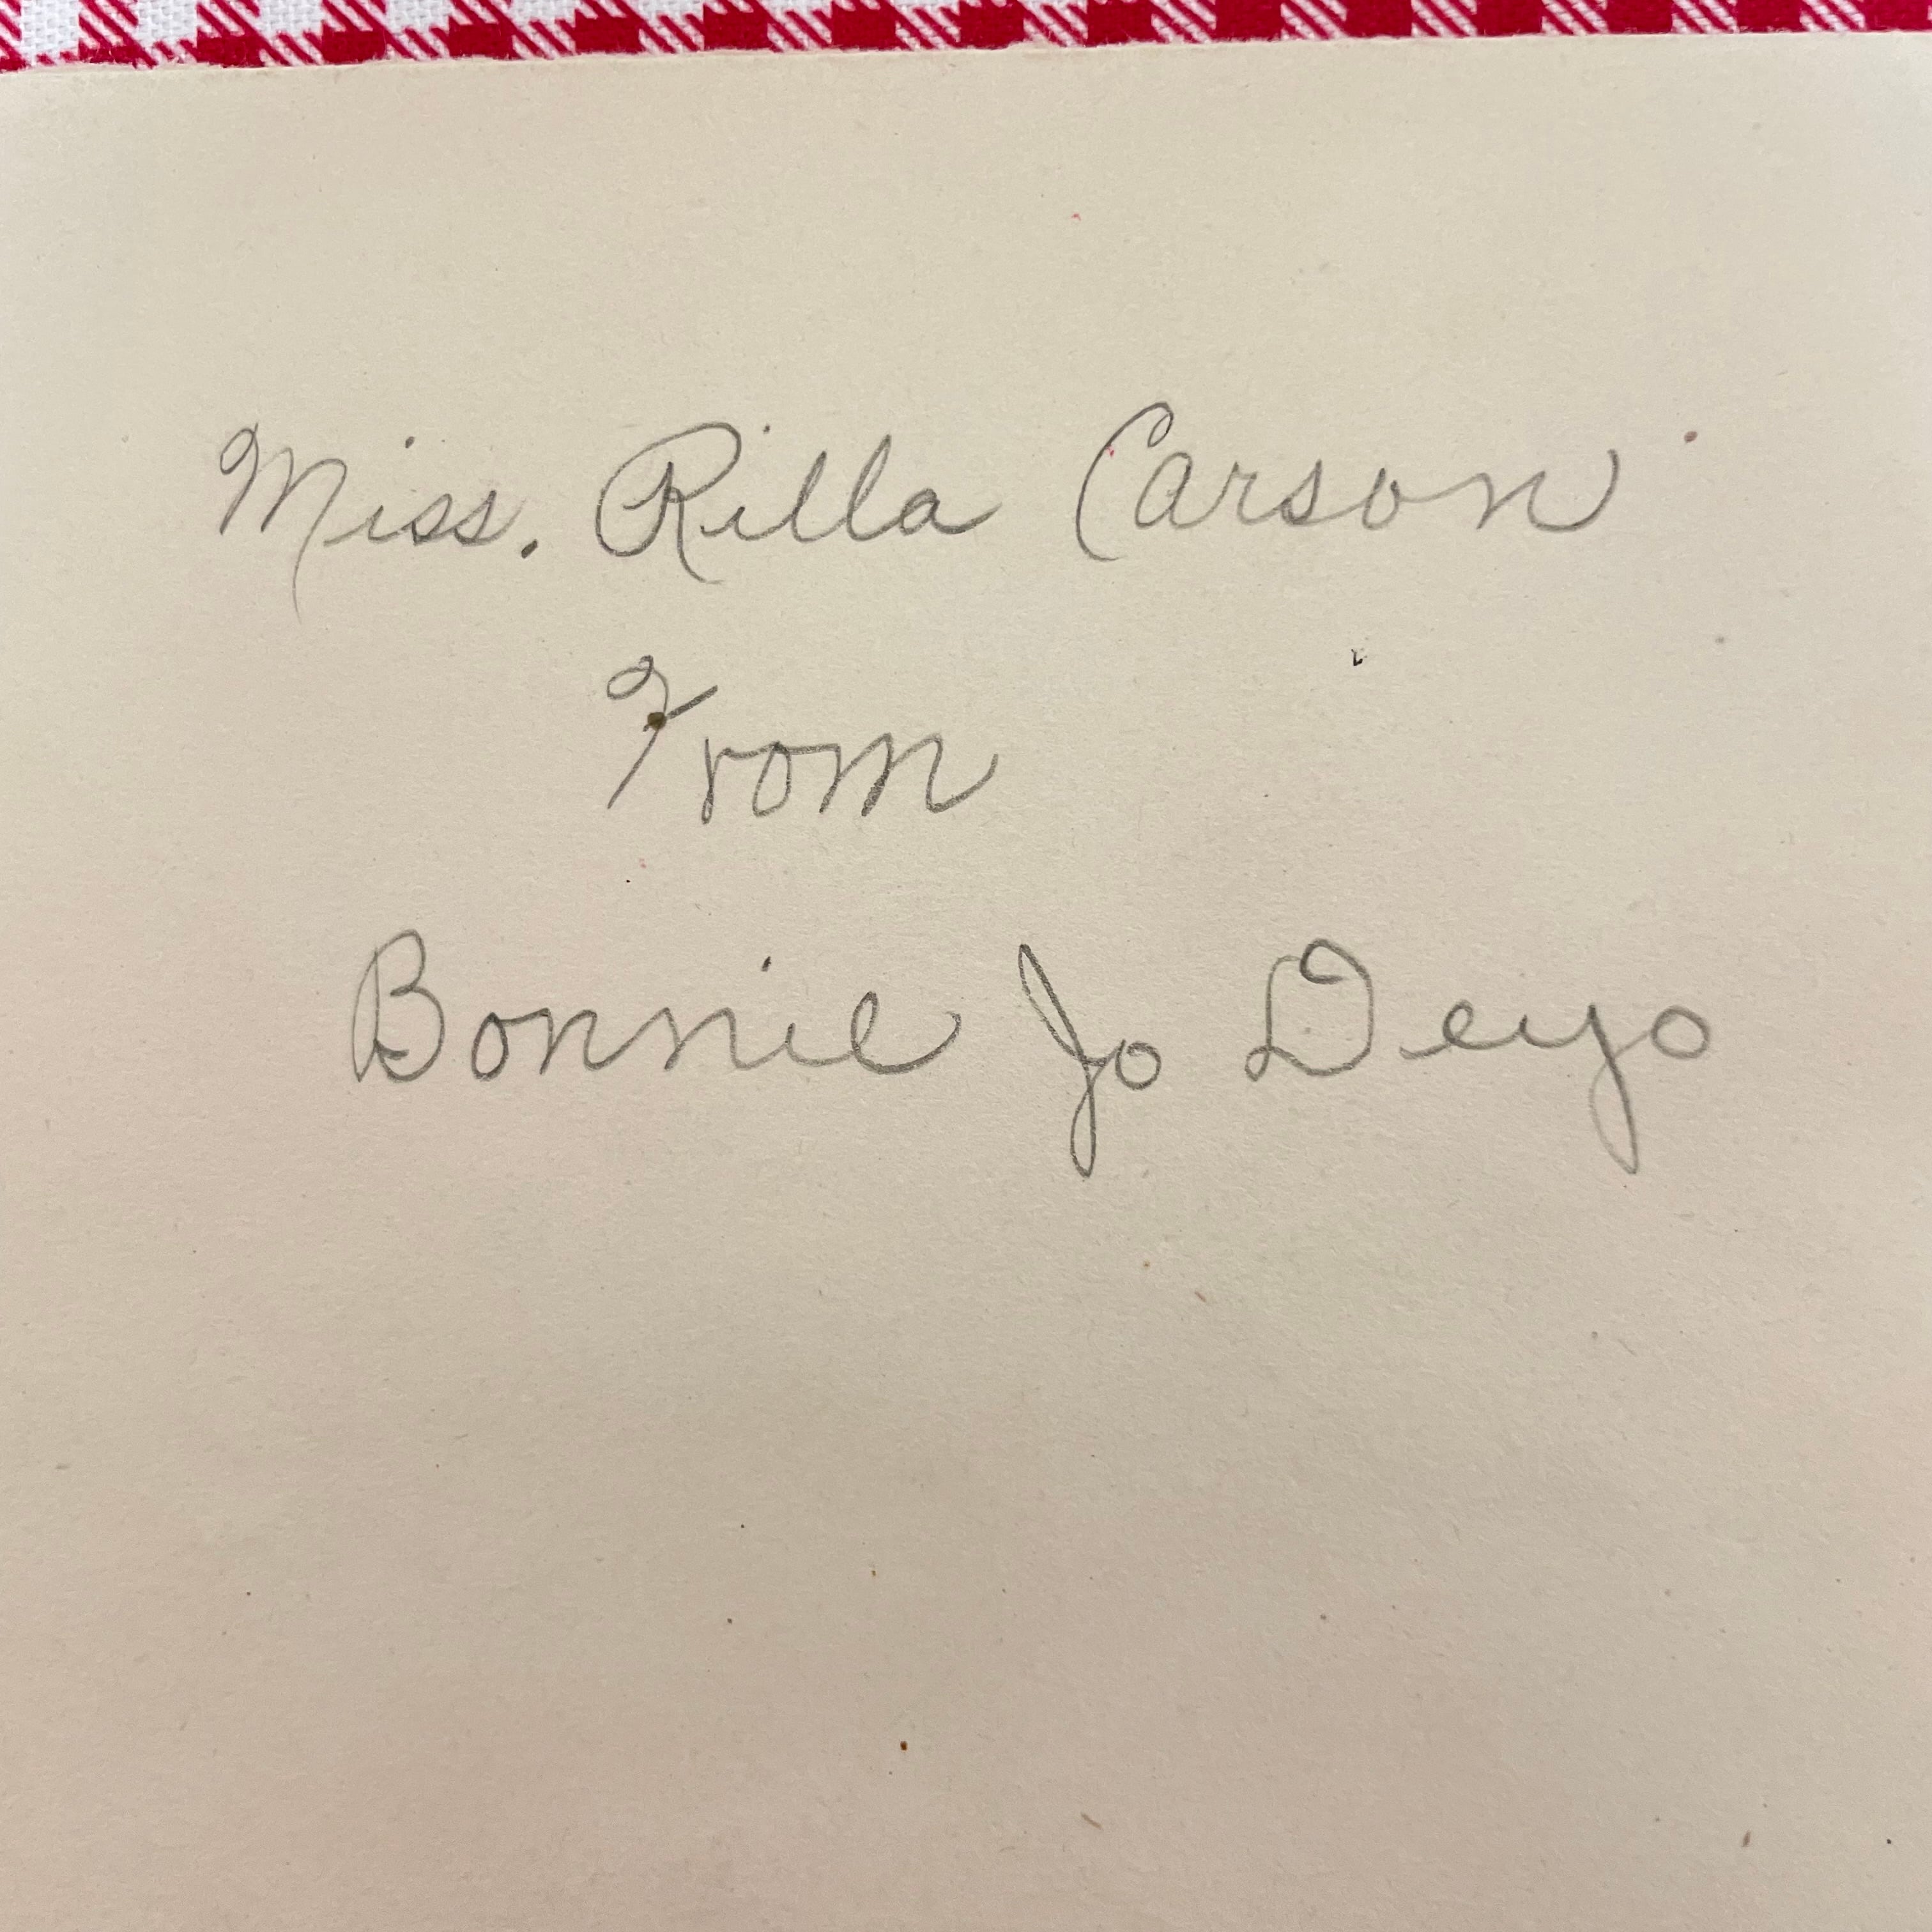 Miss. Rilla Carson
From
Bonnie Jo Deyo